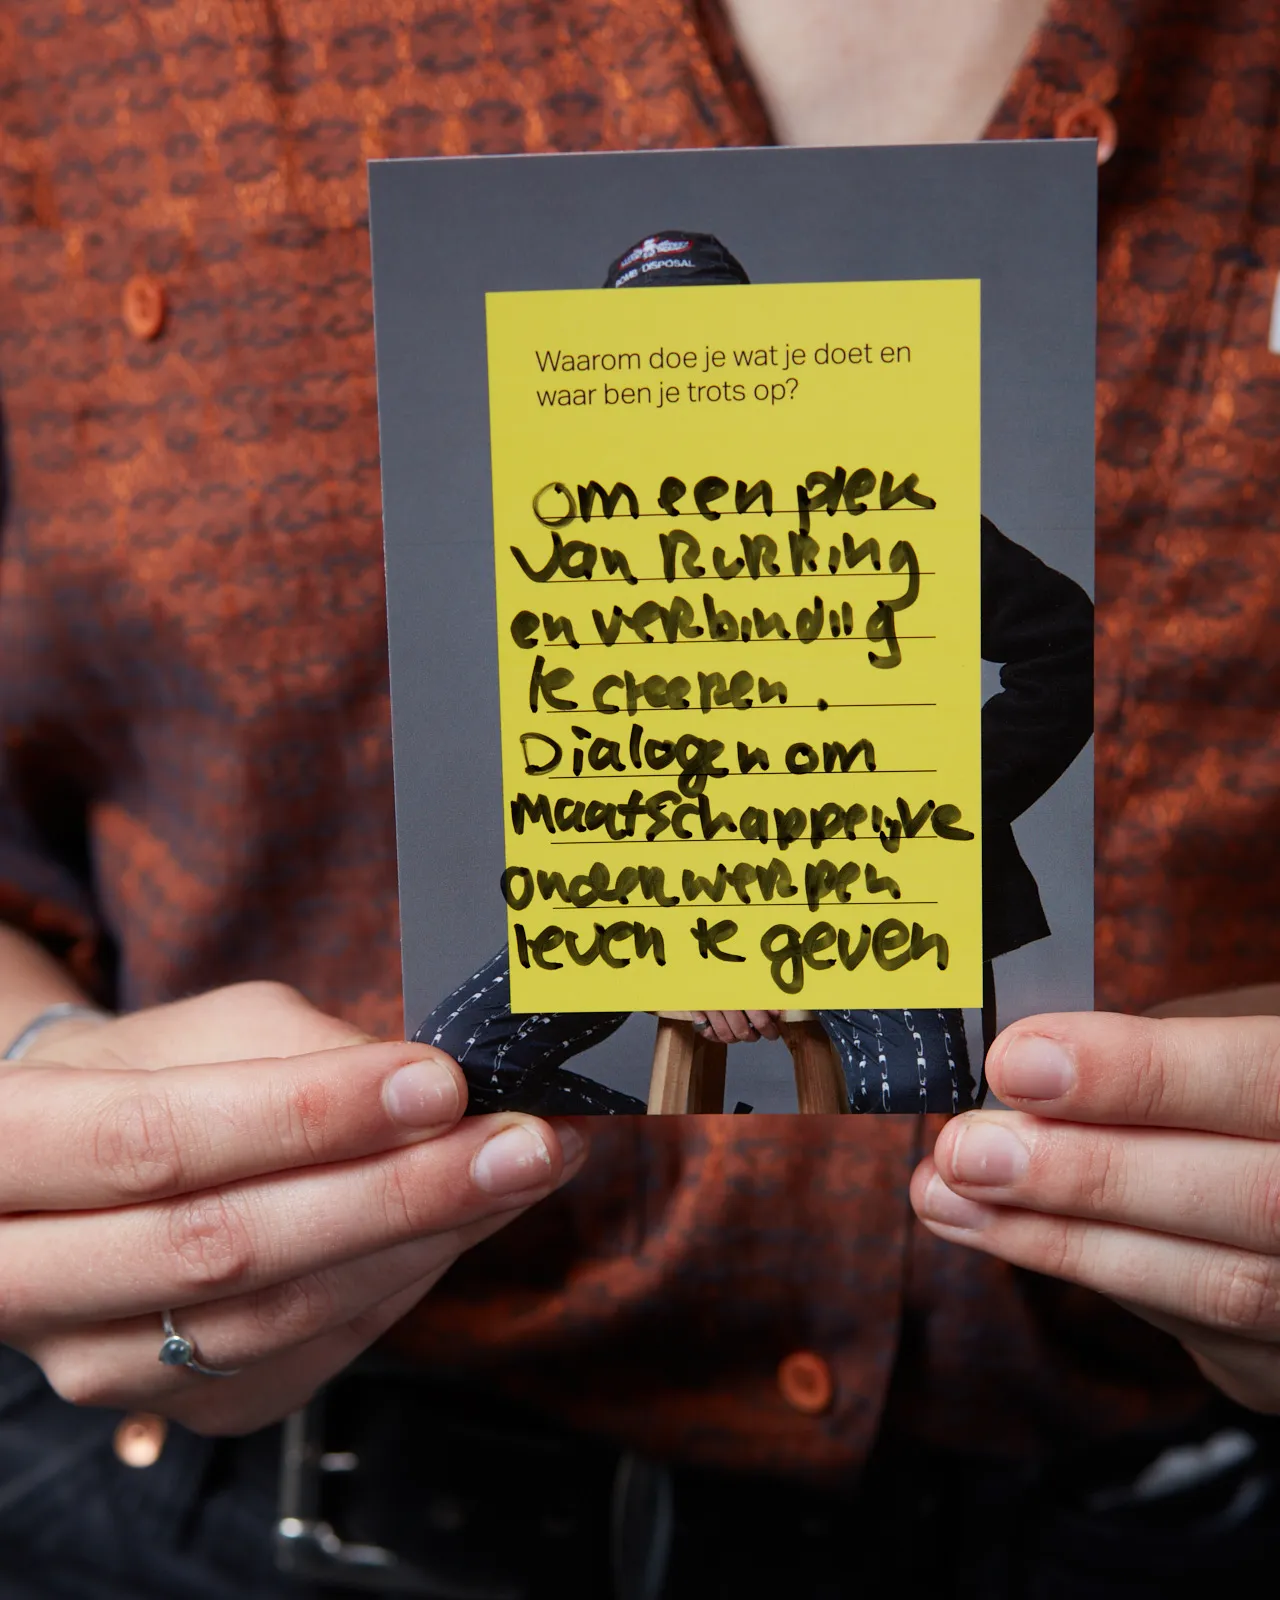 BOMB DISPOSAL
Waarom doe je wat je doet en
waar ben je trots op?
Om een plek
van
en verbindiig
te creeren.
Dialogen om
Maatschappelijke
onderwerpen
leven te geven